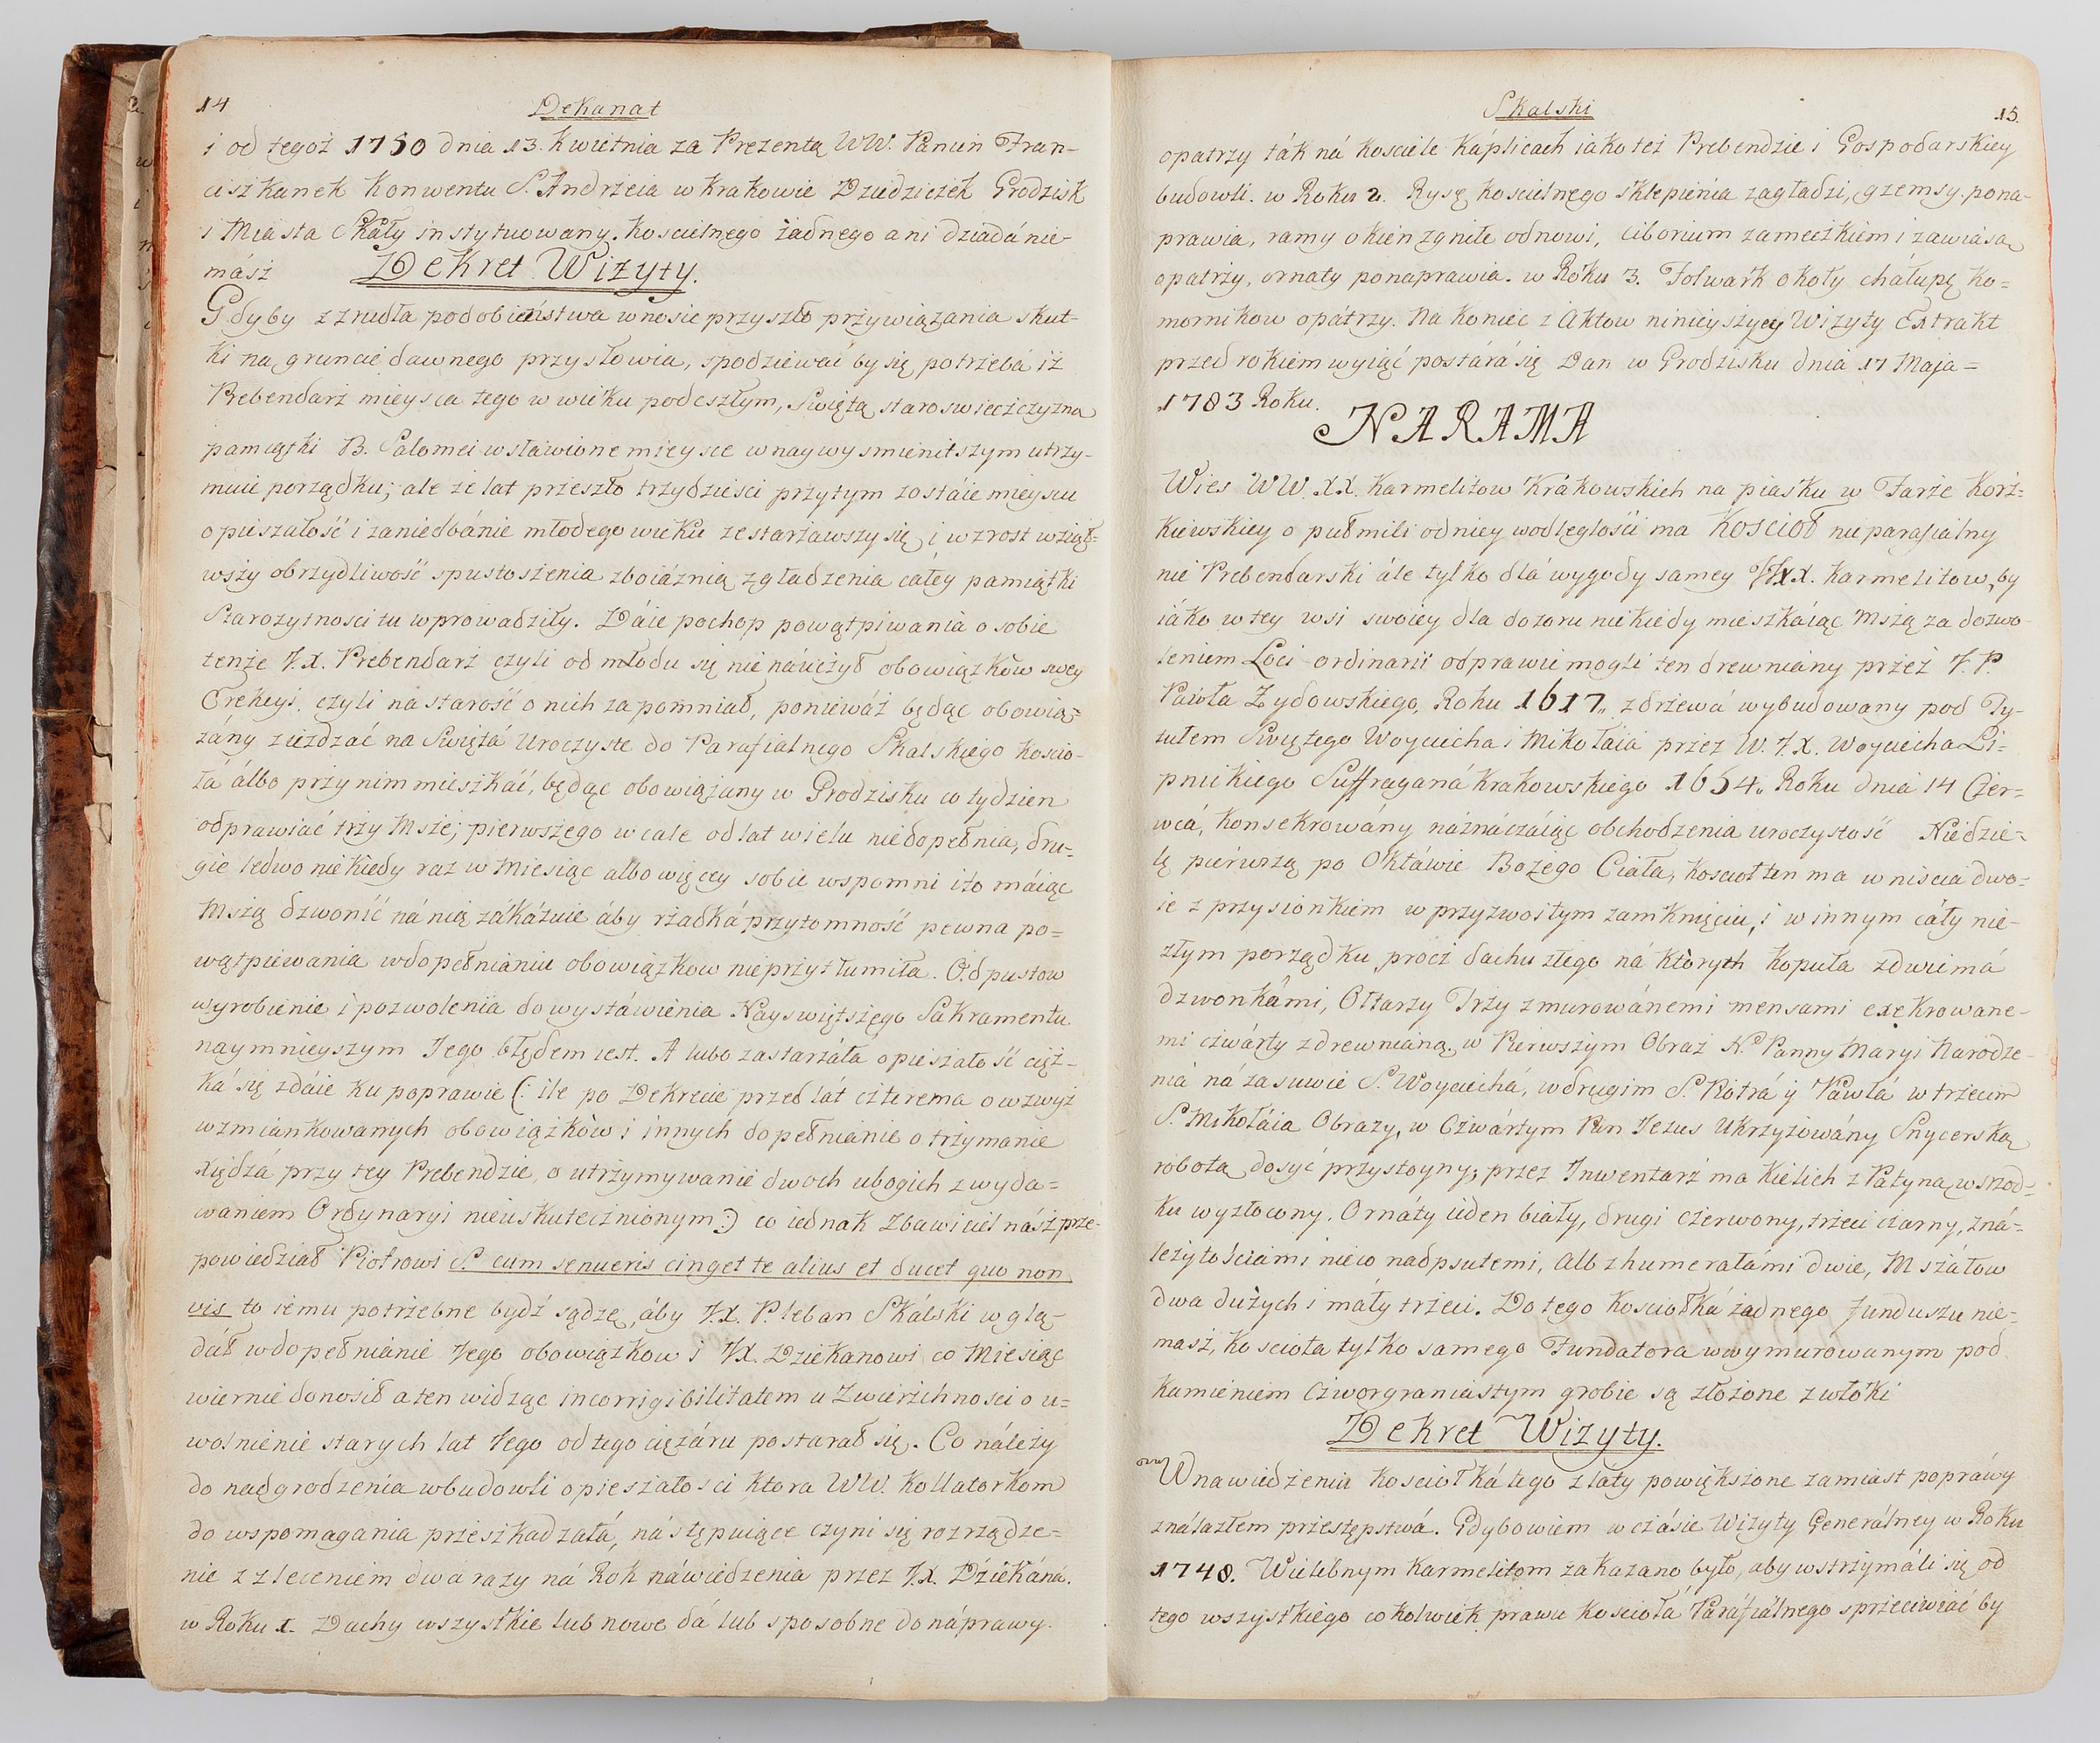 14
Dekanat
i od tegoż 1750 dnia 13. Kwietnia za Prezentą WW. Panien Fran-
ciszkanek Konwentu S. Andrzeia w Krakowie Dziedziczek Grodzisk
i Miasta Skały instytuowany. Koscielnego żadnego ani dziadá nie-
mász
Dekret Wizyty.
Gdyby z zrudła podobieństwa wnosie przyszło przywiązania skut-
ki na gruncie dawnego przysłowia, spodziewać by się potrzebá iż
Prebendarz mieysca tego w wieku podeszłym, Swiętą staroswiecżczyzną
pamiątki B. Salomei wsławione mieysce w naywysmienitszym utrzy-
muie porządku; ale że lat przeszło trzydzieści przytym zostáie mieyscu
opieszałość i zaniedbánie młodego wieku zestarzawszy się i wzrost wziął-
wszy obrzydliwość spustoszenia zboiáźnią zgładzenia całey pamiątki
Starożytnosci tu wprowadziły. Dáie pochop powątpiwania o sobie
tenże J.X. Prebendarz czyli od młodu się nie náuczył obowiązków swey
Erekcyi, czyli na starość o nich zapomniał, poniewáż będąc obowią=
zány zieżdzać na Swiętá Uroczyste do Parafialnego Skalskiego Koscio-
łá álbo przy nim mieszkáć, będąc obowiązany w Grodzisku co tydzien
odprawiać trzy Msze; pierwszego wcale od lat wielu niedopełnia, dru-
gie ledwo niekiedy raz w Miesiąc albo więcey sobie wspomni i to máiąc
Mszą dzwonić ná nią zákázuie áby rzadká przytomność pewna po=
wątpiewania wdopełnianiu obowiązkow nieprzytłumiła. Odpustow
wyrobienie i pozwolenia do wystáwienia Nayswiętszego Sakramentu
naymnieyszym Jego błędem iest. A lubo zastarzáłá opieszałość cięż-
ká się zdáie ku poprawie (: ile po Dekrecie przed lát czterema o wzwyż
wzmiankowanych obowiązków i innych dopełnianie o trzymanie
Xiędzá przy tey Prebendzie, o utrzymywanie dwoch ubogich z wyda=
waniem Ordynaryi nieuskutecznionym:) co iednak Zbawiciel násż prze-
powiedział Piotrowi S. cum senueris cinget te alius et ducet quo non
vis to iemu potrzebne bydź sądzę, áby J.X. Pleban Skálski wglą-
dáł wdopełnianie Jego obowiązkow i JX. Dziekanowi co Miesiąc
wiernie donosił a ten widząc incorrigibilitatem u Zwierzchnosci o u=
wolnienie starych lat Jego od tego ciężáru postarał się. Co náleży
do nadgrodzenia wbudowli opieszałosci ktora WW. Kollatorkom
do wspomagania przeszkadzałá, nástępuiące czyni się rozrządze=
nie z zleceniem dwa razy ná Rok náwiedzenia przez J.X. Dźiekáná.
w Roku 1. Dachy wszystkie lub nowe dá lub sposobne do náprawy.
Skalski
15.
opatrzy ták ná Kosciele Káplicach iako też Prebendzie i Gospodarskiey
budowli. w Roku 2. Rysę koscielnego sklepienia zagładzi, gzemsy pona-
prawia, ramy okien zgniłe odnowi, ciborium zameczkiem i zawiasą
opatrzy, ornaty ponaprawia. w Roku 3. Folwark okoły cháłupę Ko=
mornikow opátrzy. Na Koniec z Aktow ninieyszycy Wizyty Extrakt
przed rokiem wyiąć postárá się Dan w Grodzisku dnia 17 Maja =
1783 Roku.
NARAMA
Wies WW. XX. Karmelitow Krákowskich na piasku w Farze Korz=
kiewskiey o pułmili od niey wodległości ma Kościoł nie parafialny
nie Prebendarski ále tylko dlá wygody samey JXX. Karmelitow, by
iáko w tey wsi swoiey dla dozoru niekiedy mieszkáiąc Mszą za dozwo-
leniem Loci ordinarii odprawie mogli ten drewniány przez J.P.
Pawła Zydowskiego, Roku 1617. z drzewá wybudowany pod Ty-
tułem Swiętego Woyciecha i Mikołaia przez W. J.X. Woyciecha Li=
pnickiego Suffraganá Krakowskiego 1654. Roku dnia 14 Czer=
wcá, konsekrowány náznáczáiąc obchodzenia uroczystość Niedzie-
lę pierwszą po Oktáwie Bożego Ciała, Kosciołten ma wniścia dwo=
ie z przysionkiem w przyzwoitym zamknięciu, i w innym cáły nie-
złym porządku, procz dachu złego ná ktorych kopuła z dwiemá
dzwonkámi, Ołtarzy Trzy z murowánemi mensami exekrowane-
mi czwárty z drewnianą, w Pierwszym Obraz N. Panny Maryi Narodze-
niá ná zasuwie S. Woyciechá, w drugim S. Piotrá y Páwłá w trzecim
S. Mikołáia Obrazy, w Czwártym Pan Jezus Ukrzyżowány Snycerską
robotą dosyć przystoyny; przez Inwentarz ma Kielich z Patyną wsrod=
ku wyzłocony. Ornáty ieden biały, drugi czerwony, trzeci czarny, zná=
leżytościami nieco nadpsutemi, Alb z humerałámi dwie, Mszáłow
dwa dużych i máły trzeci. Do tego Kosciołká żadnego funduszu nie=
masz, Kosciołá tylko samego Fundatora w wymurowanym pod
kamieniem czworgraniastym grobie są złożone zwłoki
Dekret Wizyty.
W nawiedzeniu Kosciołká tego z laty powiększone zamiast popráwy
ználazłem przestępstwá. Gdybowiem w czásie Wizyty Generálney w Roku
1748. Wielebnym Karmelitom zakazano było, aby wstrzymáli się od
tego wszystkiego cokolwiek prawu Koscioła Paráfiálnego sprzeciwiać by